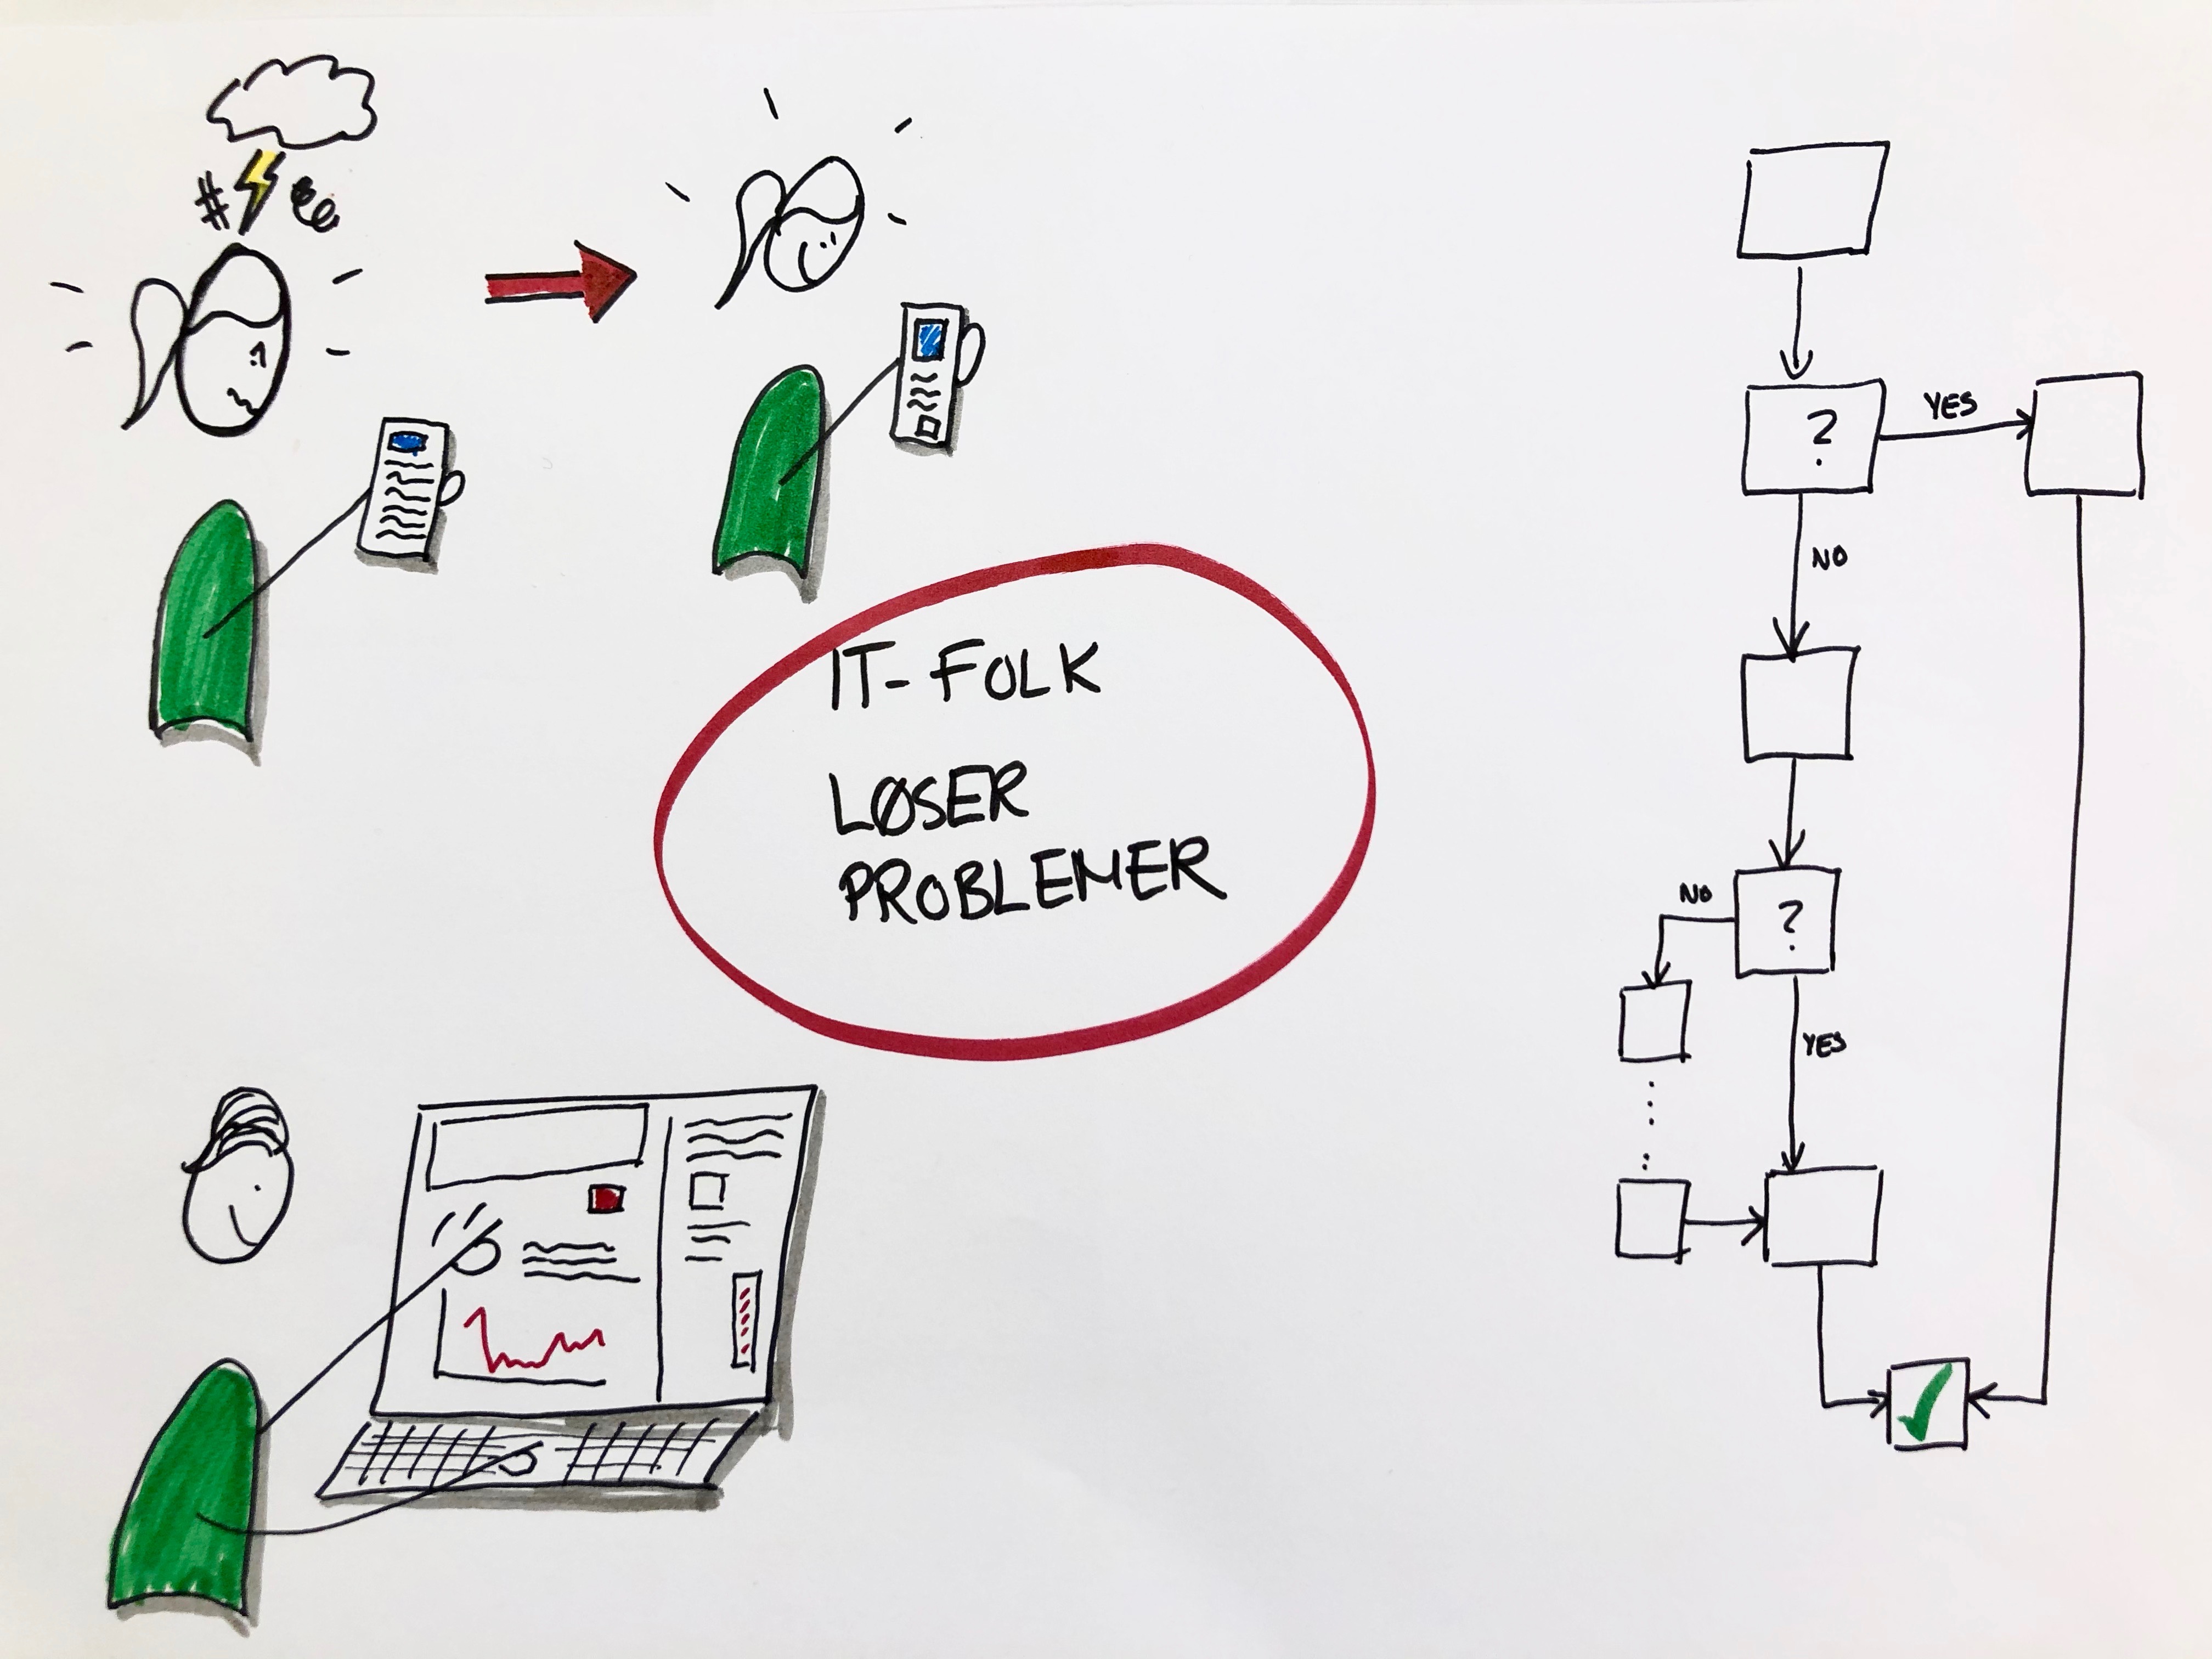 #
IT-FOLK
LØSER
PROBLEMER
?
YES
NO
?
NO
YES